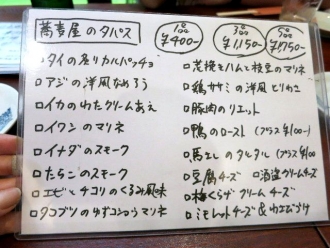 蕎麦屋のタパス
1品 ¥400-
3品 ¥1,150-
5品 ¥1,750-
□タイの炙りカルパッチョ
□アジの洋風なめろう
□イカのわたクリームあえ
□イワシのマリネ
□イナダのスモーク
□たらこのスモーク
□エビとチコリのくるみ風味
□タコブツのゆずコショウマリネ
ハムと枝豆のマリネ
□鶏ササミの洋風とりわさ
□豚肉のリエット
□鴨のロースト (プラス¥100-)
□馬 のタルタル (プラス¥100-)
□豆腐チーズ □酒盗クリームチーズ
□梅くらげクリームチーズ
□ミモレットチーズ&